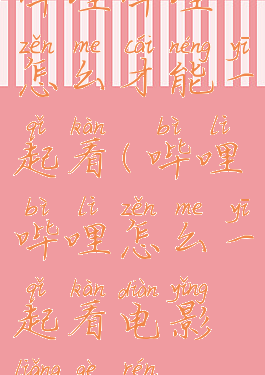 zěn me cái néng yī
怎么才能一
qǐ kàn bì lì
起看(哔哩
bì lì zěn me yī
哔哩怎么一
qǐ kàn diàn yǐng
起看电影
liǎng gè rén